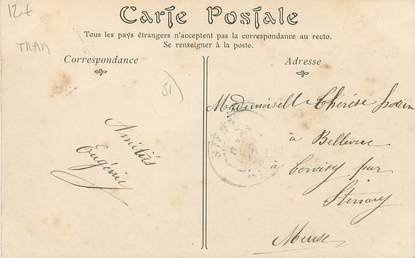 12+
TRAM
Carte Postale
Tous les pays étrangers n'acceptent pas la correspondance au recto.
Se renseigner à la poste.
Correspondance
Adresse
51
Amitiés
Eugénie
Mademoiselle Thérèse
à Bellevue
à par
Meuse